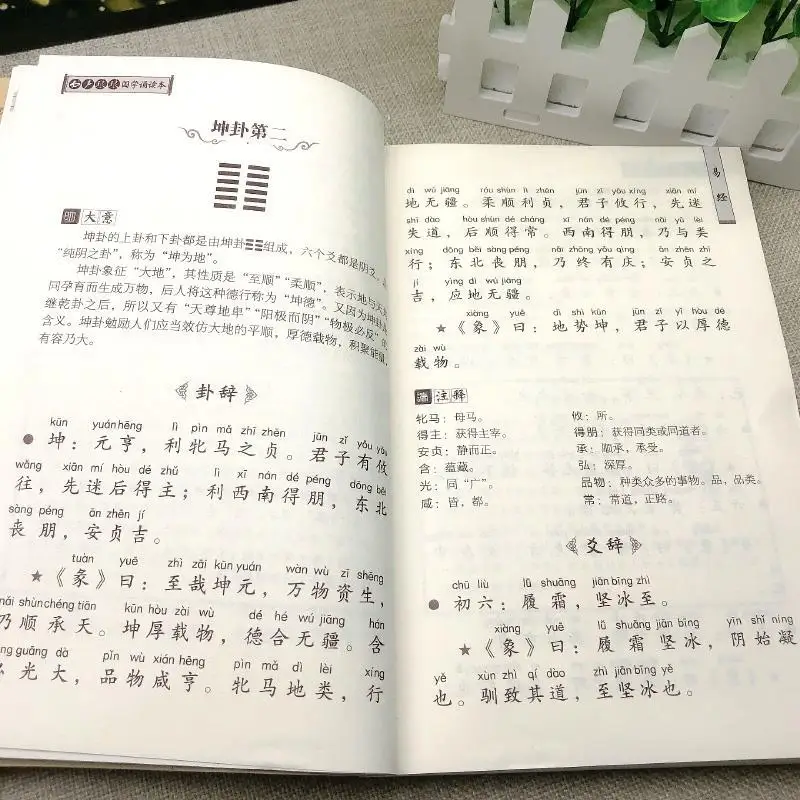 国学诵读本
坤卦第二
大意
坤卦的上卦和下卦都是由坤卦☷☷组成，六个爻都是阴爻，
“纯阴之卦”，称为“坤为地”。
坤卦象征“大地”，其性质是“至顺”“柔顺”，表示地与天
同孕育而生成万物，后人将这种德行称为“坤德”。又因为坤卦
继乾卦之后，所以又有“天尊地卑”“阳极而阴”“物极必反”的
含义。坤卦勉励人们应当效仿大地的平顺，厚德载物，积聚能量，
有容乃大。
卦辞
kūn yuánhēng lì pìn mǎ zhī zhēn jūn zǐ yǒu yōu
坤：元亨，利牝马之贞。君子有攸
wǎng xiān mí hòu dé zhǔ lì xī nán dé péng dōng běi
往，先迷后得主；利西南得朋，东北
sàng péng ān zhēn jí
丧朋，安贞吉。
tuàn yuē zhì zāi kūn yuán wàn wù zī shēng
★《彖》曰：至哉坤元，万物资生，
nǎi shùn chéng tiān kūn hòu zài wù dé hé wú jiāng hán
乃顺承天。坤厚载物，德合无疆。含
guāng dà pǐn wù xián hēng pìn mǎ dì lèi xíng
光大，品物咸亨。牝马地类，行
易经
dì wú jiāng róu shùn lì zhēn jūn zǐ yōu xíng xiān mí
地无疆。柔顺利贞，君子攸行，先迷
shī dào hòu shùn dé cháng xī nán dé péng nǎi yǔ lèi
失道，后顺得常。西南得朋，乃与类
xíng dōng běi sàng péng nǎi zhōng yǒu qìng ān zhēn zhī
行；东北丧朋，乃终有庆；安贞之
jí yìng dì wú jiāng
吉，应地无疆。
xiàng yuē dì shì kūn jūn zǐ yǐ hòu dé
★《象》曰：地势坤，君子以厚德
zài wù
载物。
注释
牝马：母马。 攸：所。
得主：获得主宰。 得朋：获得同类或同道者。
安贞：静而正。 承：顺承，承受。
含：蕴藏。 弘：深厚。
光：同“广”。 品物：种类众多的事物。品，品类。
咸：皆，都。 常：常道，正路。
爻辞
chū liù lǚ shuāng jiān bīng zhì
初六：履霜，坚冰至。
xiàng yuē lǚ shuāng jiān bīng yīn shǐ níng
★《象》曰：履霜坚冰，阴始凝
yě xùn zhì qí dào zhì jiān bīng yě
也。驯致其道，至坚冰也。